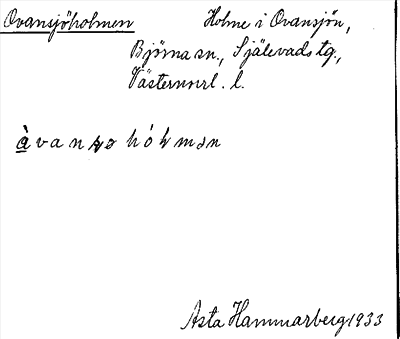 Ovansjöholmen Holme i Ovansjön,
Björna sn., Själevads tg.,
Västernnrl. l.
Asta Hammarberg 1933